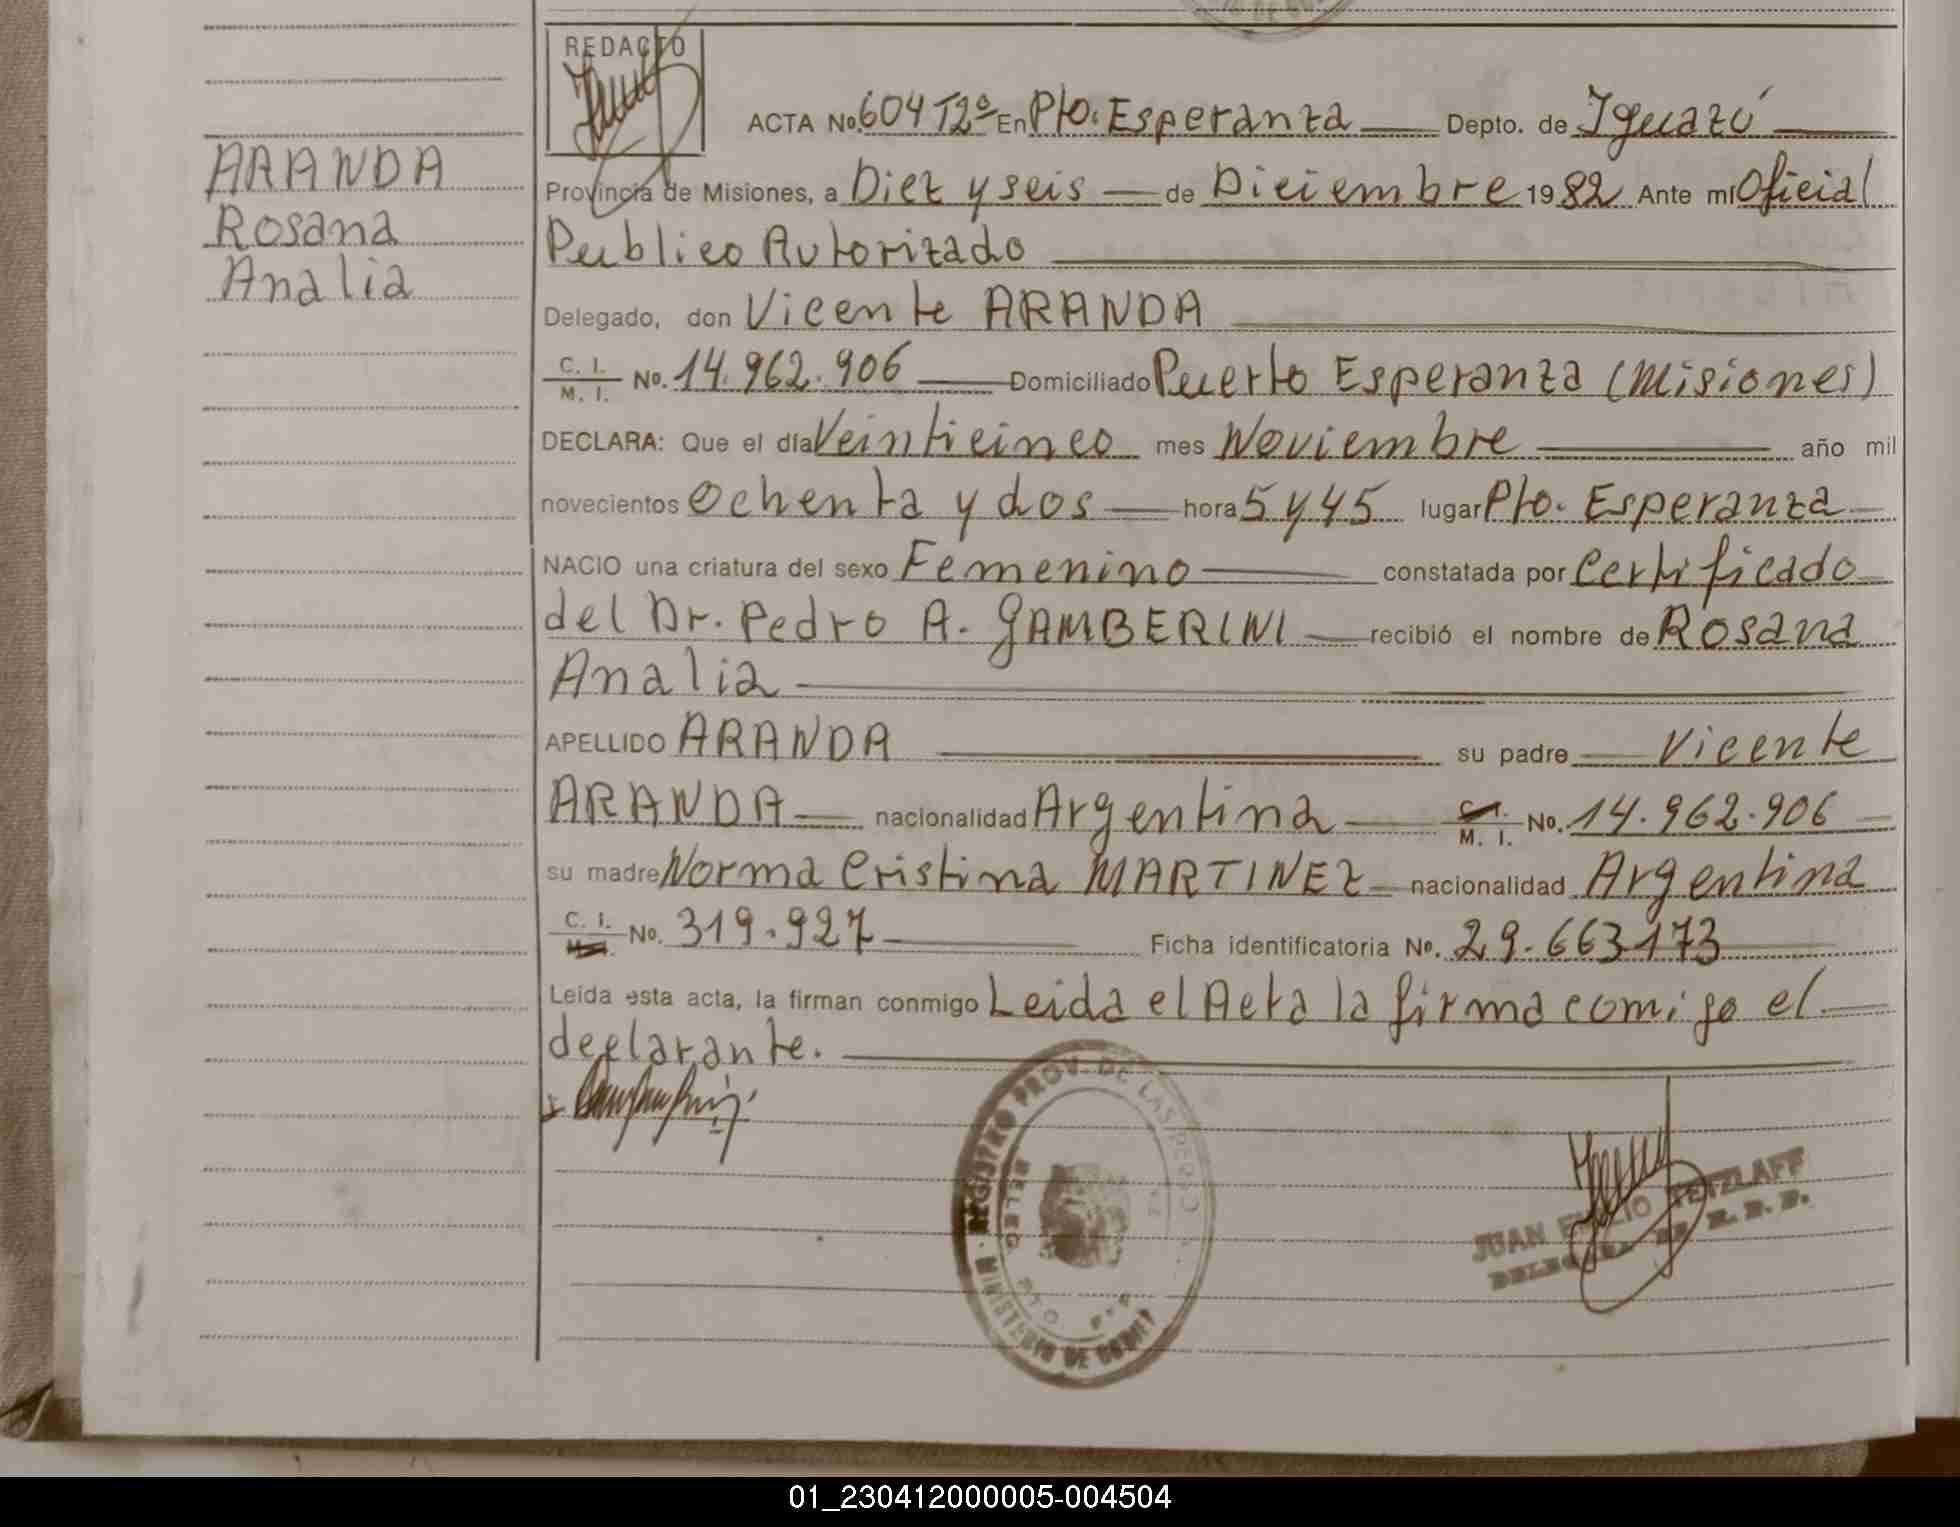 REDACTO
ACTA No. 604 T2º En Pto. Esperanza Depto. de Iguazú
ARANDA
Rosana
Analia
Provincia de Misiones, a Diez y seis de Diciembre 1982 Ante mí Oficial
Publico Autorizado
Delegado, don Vicente ARANDA
C. I.
M. I. No. 14.962.906 Domiciliado Puerto Esperanza (Misiones)
DECLARA: Que el día Veinticinco mes Noviembre año mil
novecientos ochenta y dos hora 5 y 45 lugar Pto. Esperanza
NACIO una criatura del sexo Femenino constatada por Certificado
del Dr. Pedro A. GAMBERINI recibió el nombre de Rosana
Analia
APELLIDO ARANDA su padre Vicente
ARANDA nacionalidad Argentina C. I.
M. I. No. 14.962.906
su madre Norma Cristina MARTINEZ nacionalidad Argentina
C. I.
M. I. No. 319.927 Ficha identificatoria No. 29.663173
Leída esta acta, la firman conmigo Leida el Acta la firma comigo el
declarante.
REGISTRO PROV. DE LAS PERSO
DELEG
MINISTERIO DE GOB
JUAN EMILIO TETZLAFF